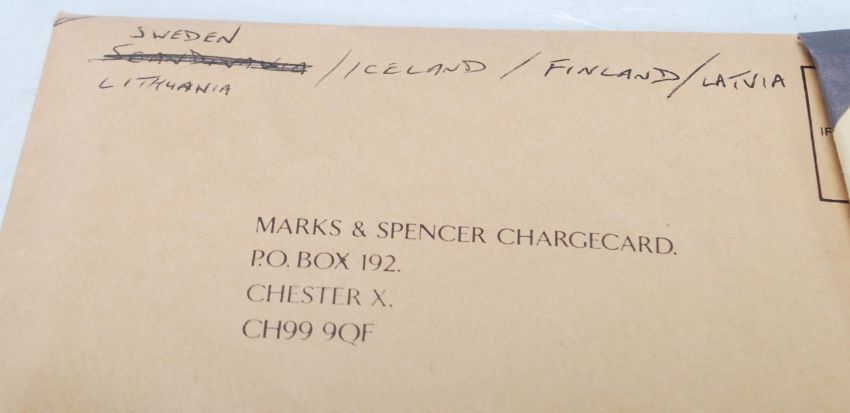 SWEDEN
SCANDINAVIA / ICELAND / FINLAND / LATVIA
LITHUANIA
IF
MARKS & SPENCER CHARGECARD.
P.O. BOX 192.
CHESTER X.
CH99 9QF